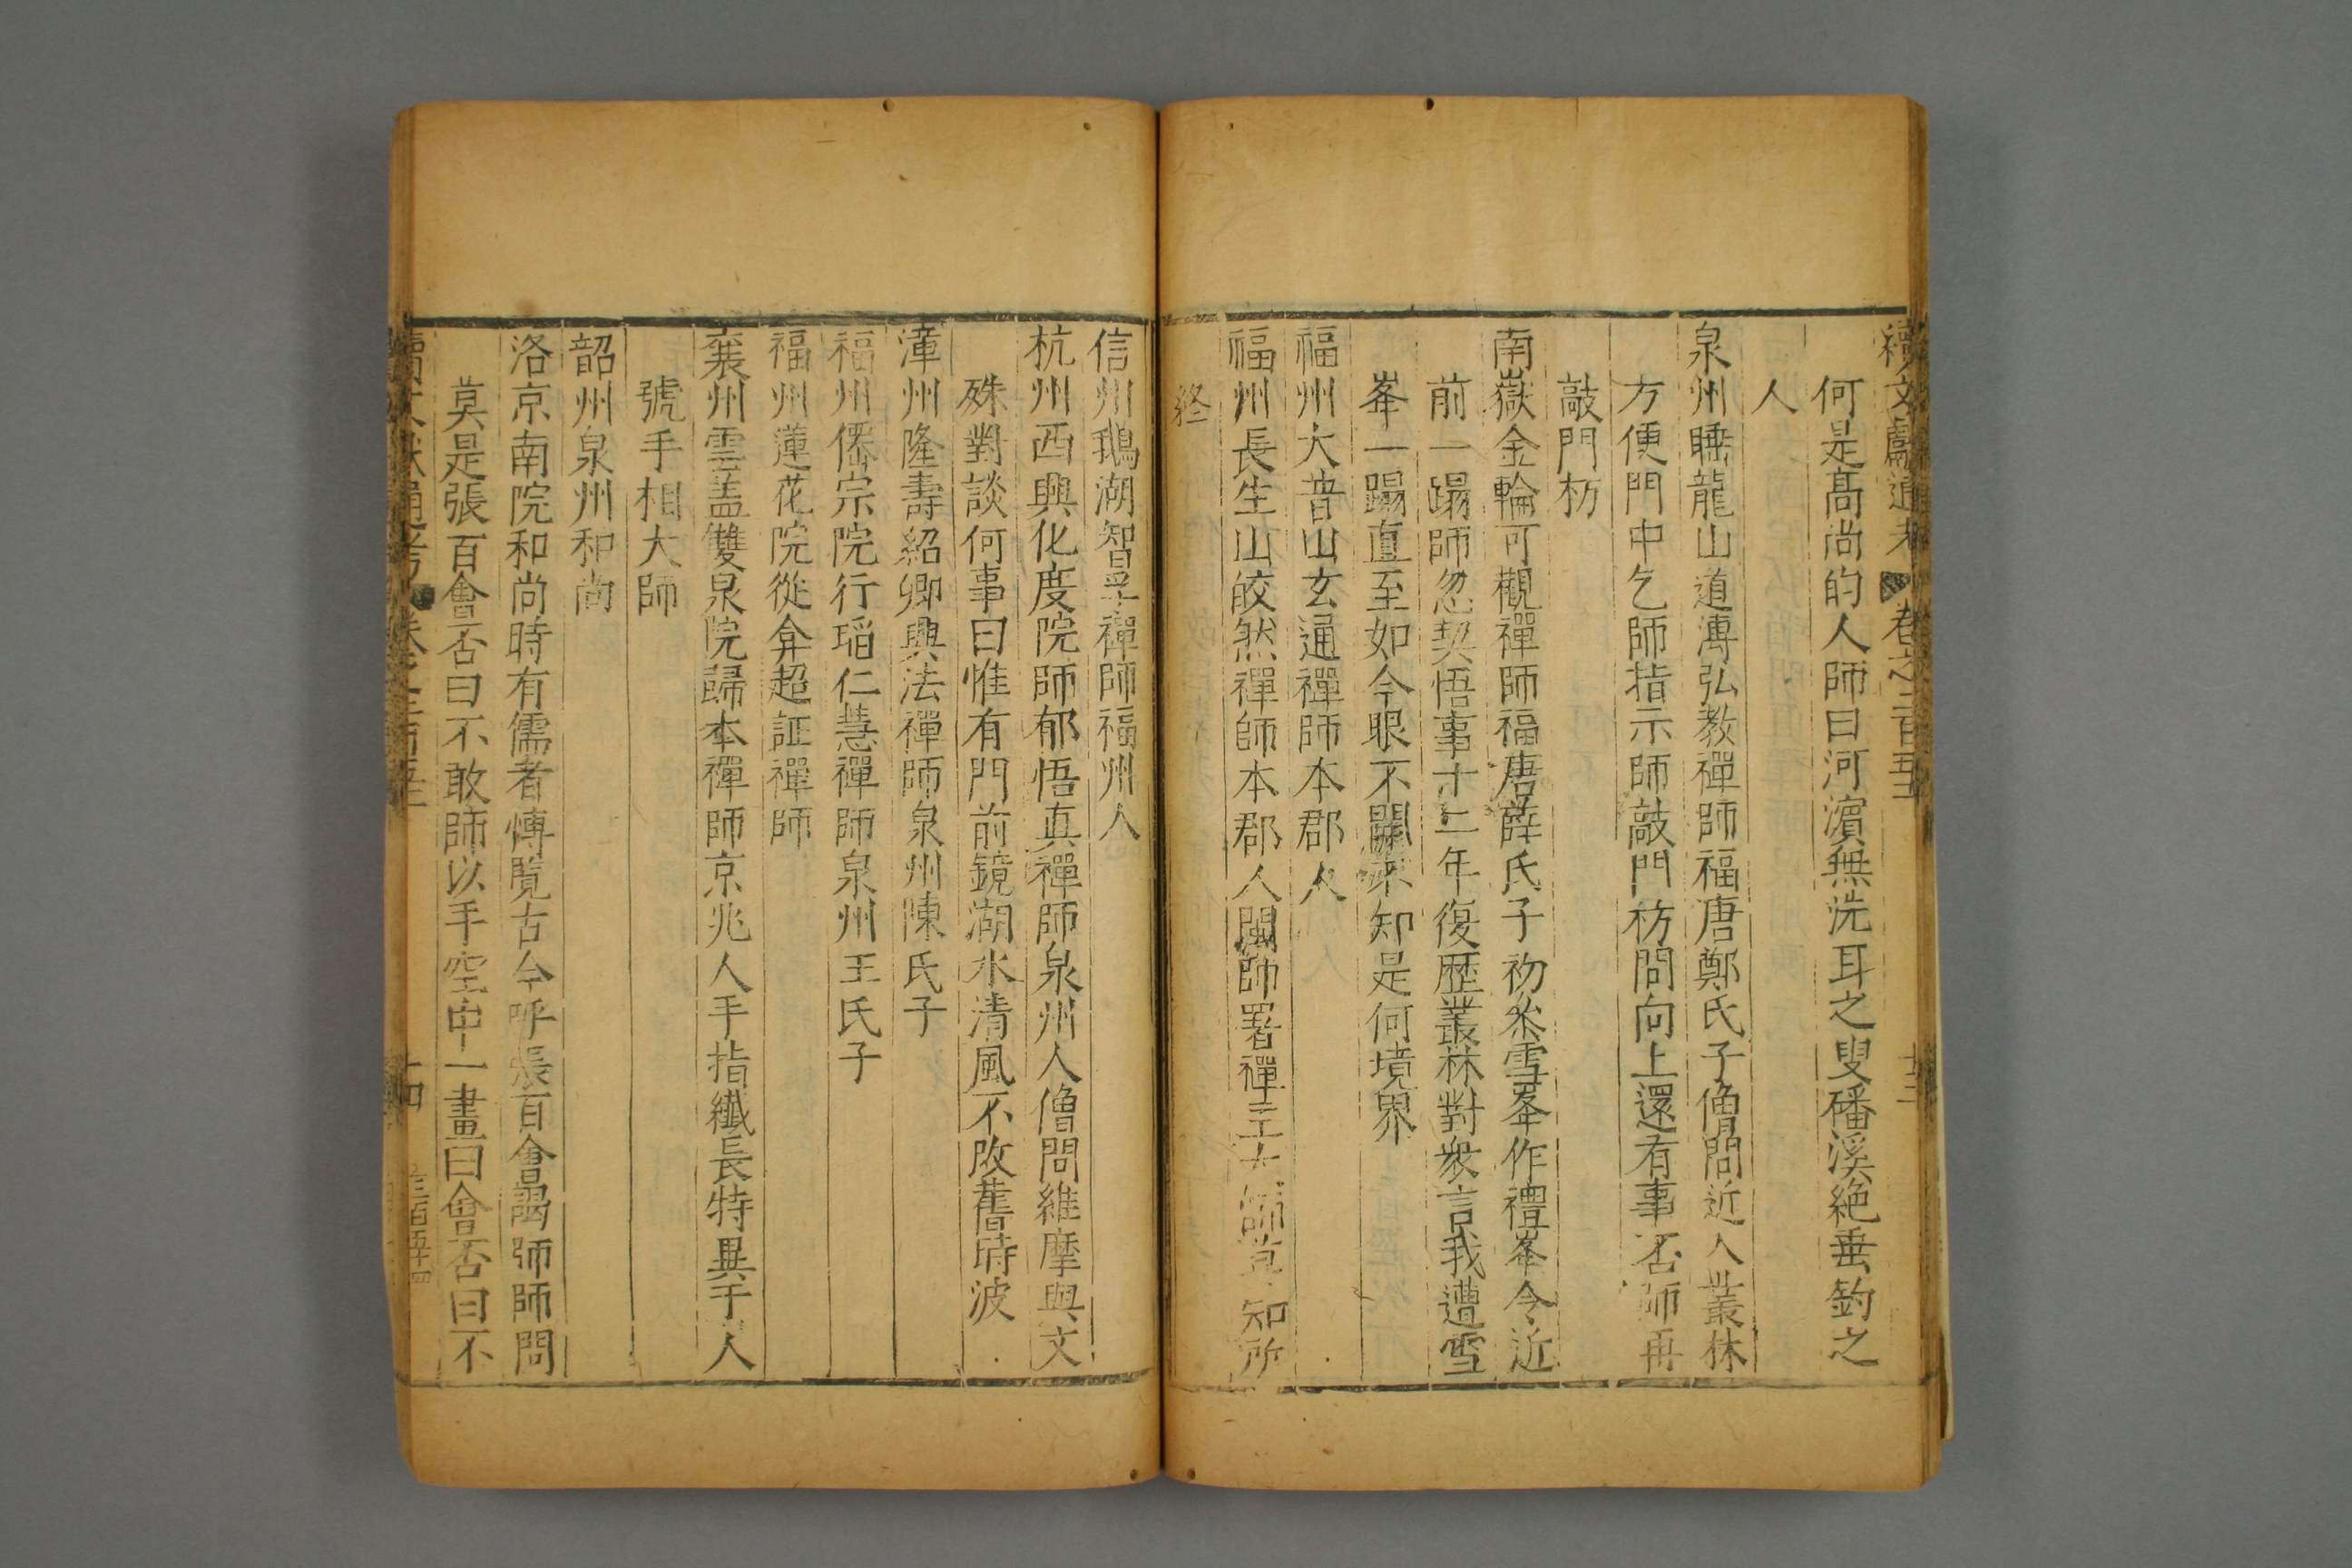 續文獻通考 卷之二百五十三
何是高尚的人師曰河濵無洗耳之叟磻溪絶垂釣之
人
泉州睡龍山道溥弘教禪師福唐鄭氏子僧問近入叢林
方便門中乞師指示師敲門枋問向上還有事否師再
敲門枋
南嶽金輪可觀禪師福唐薛氏子初叅雪峯作禮峯令近
前一蹋師忽契悟事十二年復歷叢林對衆言我遭雪
峯一蹋直至如今眼不開不知是何境界
福州大普山玄通禪師本郡人
福州長生山皎然禪師本郡人閩帥署禪主大師莫知所
終
信州鵝湖智孚禪師福州人
杭州西興化度院師郁悟真禪師泉州人僧問維摩與文
殊對談何事曰惟有門前鏡湖水清風不改舊時波
漳州隆壽紹卿興法禪師泉州陳氏子
福州僊宗院行瑫仁慧禪師泉州王氏子
福州蓮花院從弇超証禪師
襄州雲蓋雙泉院歸本禪師京兆人手指纎長特異于人
號手相大師
韶州泉州和尚
洛京南院和尚時有儒者愽覧古今呼張百會謁師師問
莫是張百會否曰不敢師以手空中一畫曰會否曰不
續文獻通考 卷之二百五十三 十四 三百五十四